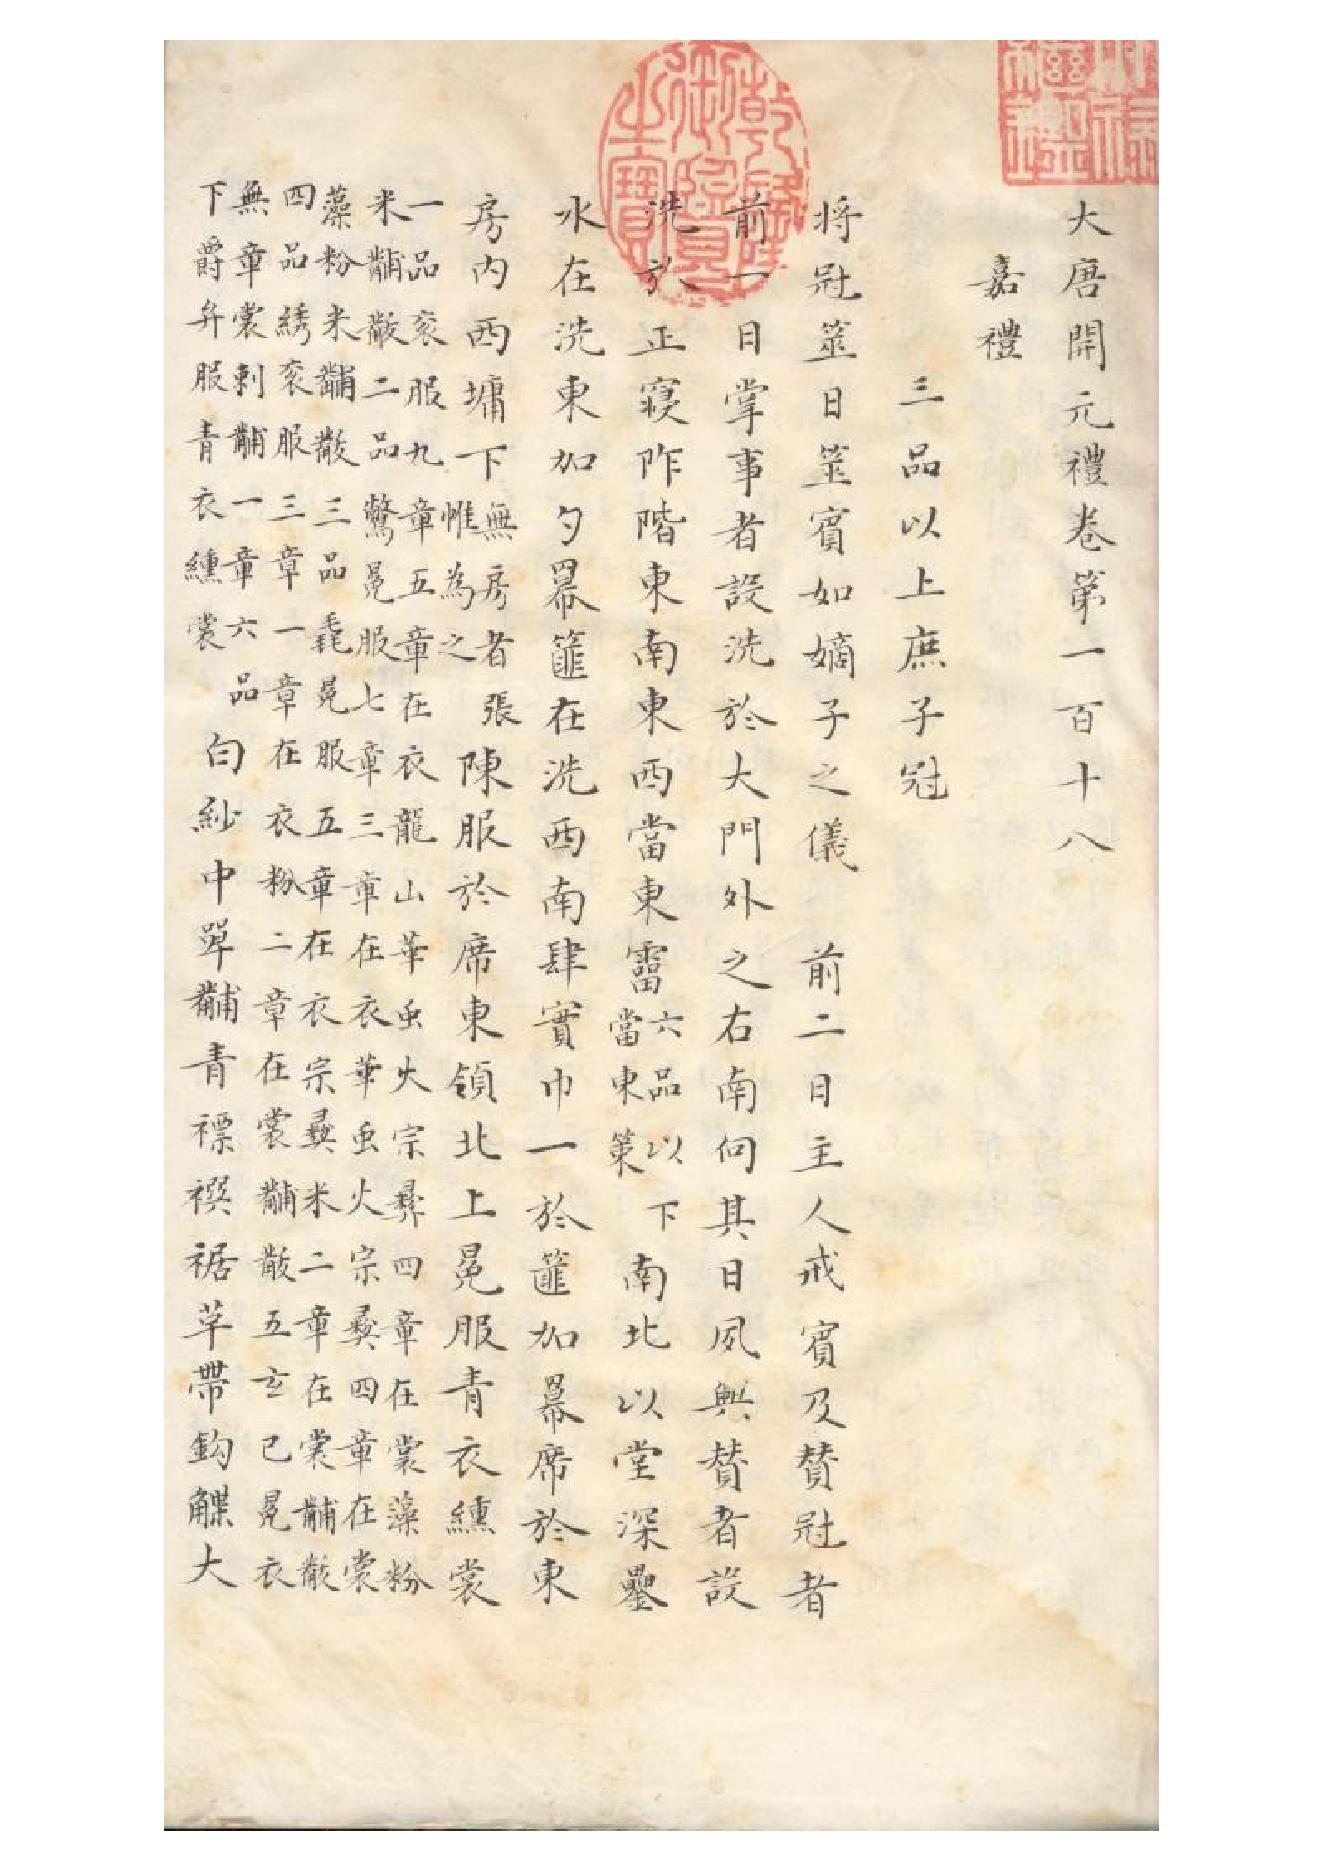 大唐開元禮卷第一百十八
嘉禮
三品以上庶子冠
將冠筮日筮賓如嫡子之儀　前二日主人戒賓及贊冠者
前一日掌事者設洗於大門外之右南向其日夙興贊者設
洗於正寢阼階東南東西當東霤六品以下當東榮南北以堂深罍
水在洗東加勺冪篚在洗西南肆實巾一於篚加冪席於東
房內西墉下無房者張帷為之陳服於席東領北上冕服青衣纁裳
一品衮服九章五章在衣龍山華虫火宗彝四章在裳藻粉
米黼黻二品驚冕服七章三章在衣華虫火宗彝四章在裳
藻粉米黼黻三品毳冕服五章在衣宗彝米二章在裳黼黻
四品綉衮服三章一章在衣粉二章在裳黼黻五玄己冕衣
無章裳刺黼一章六品
下爵弁服青衣纁裳白紗中單黼青褾襈裾革帶鈎䚢大
乾隆御覽之寶